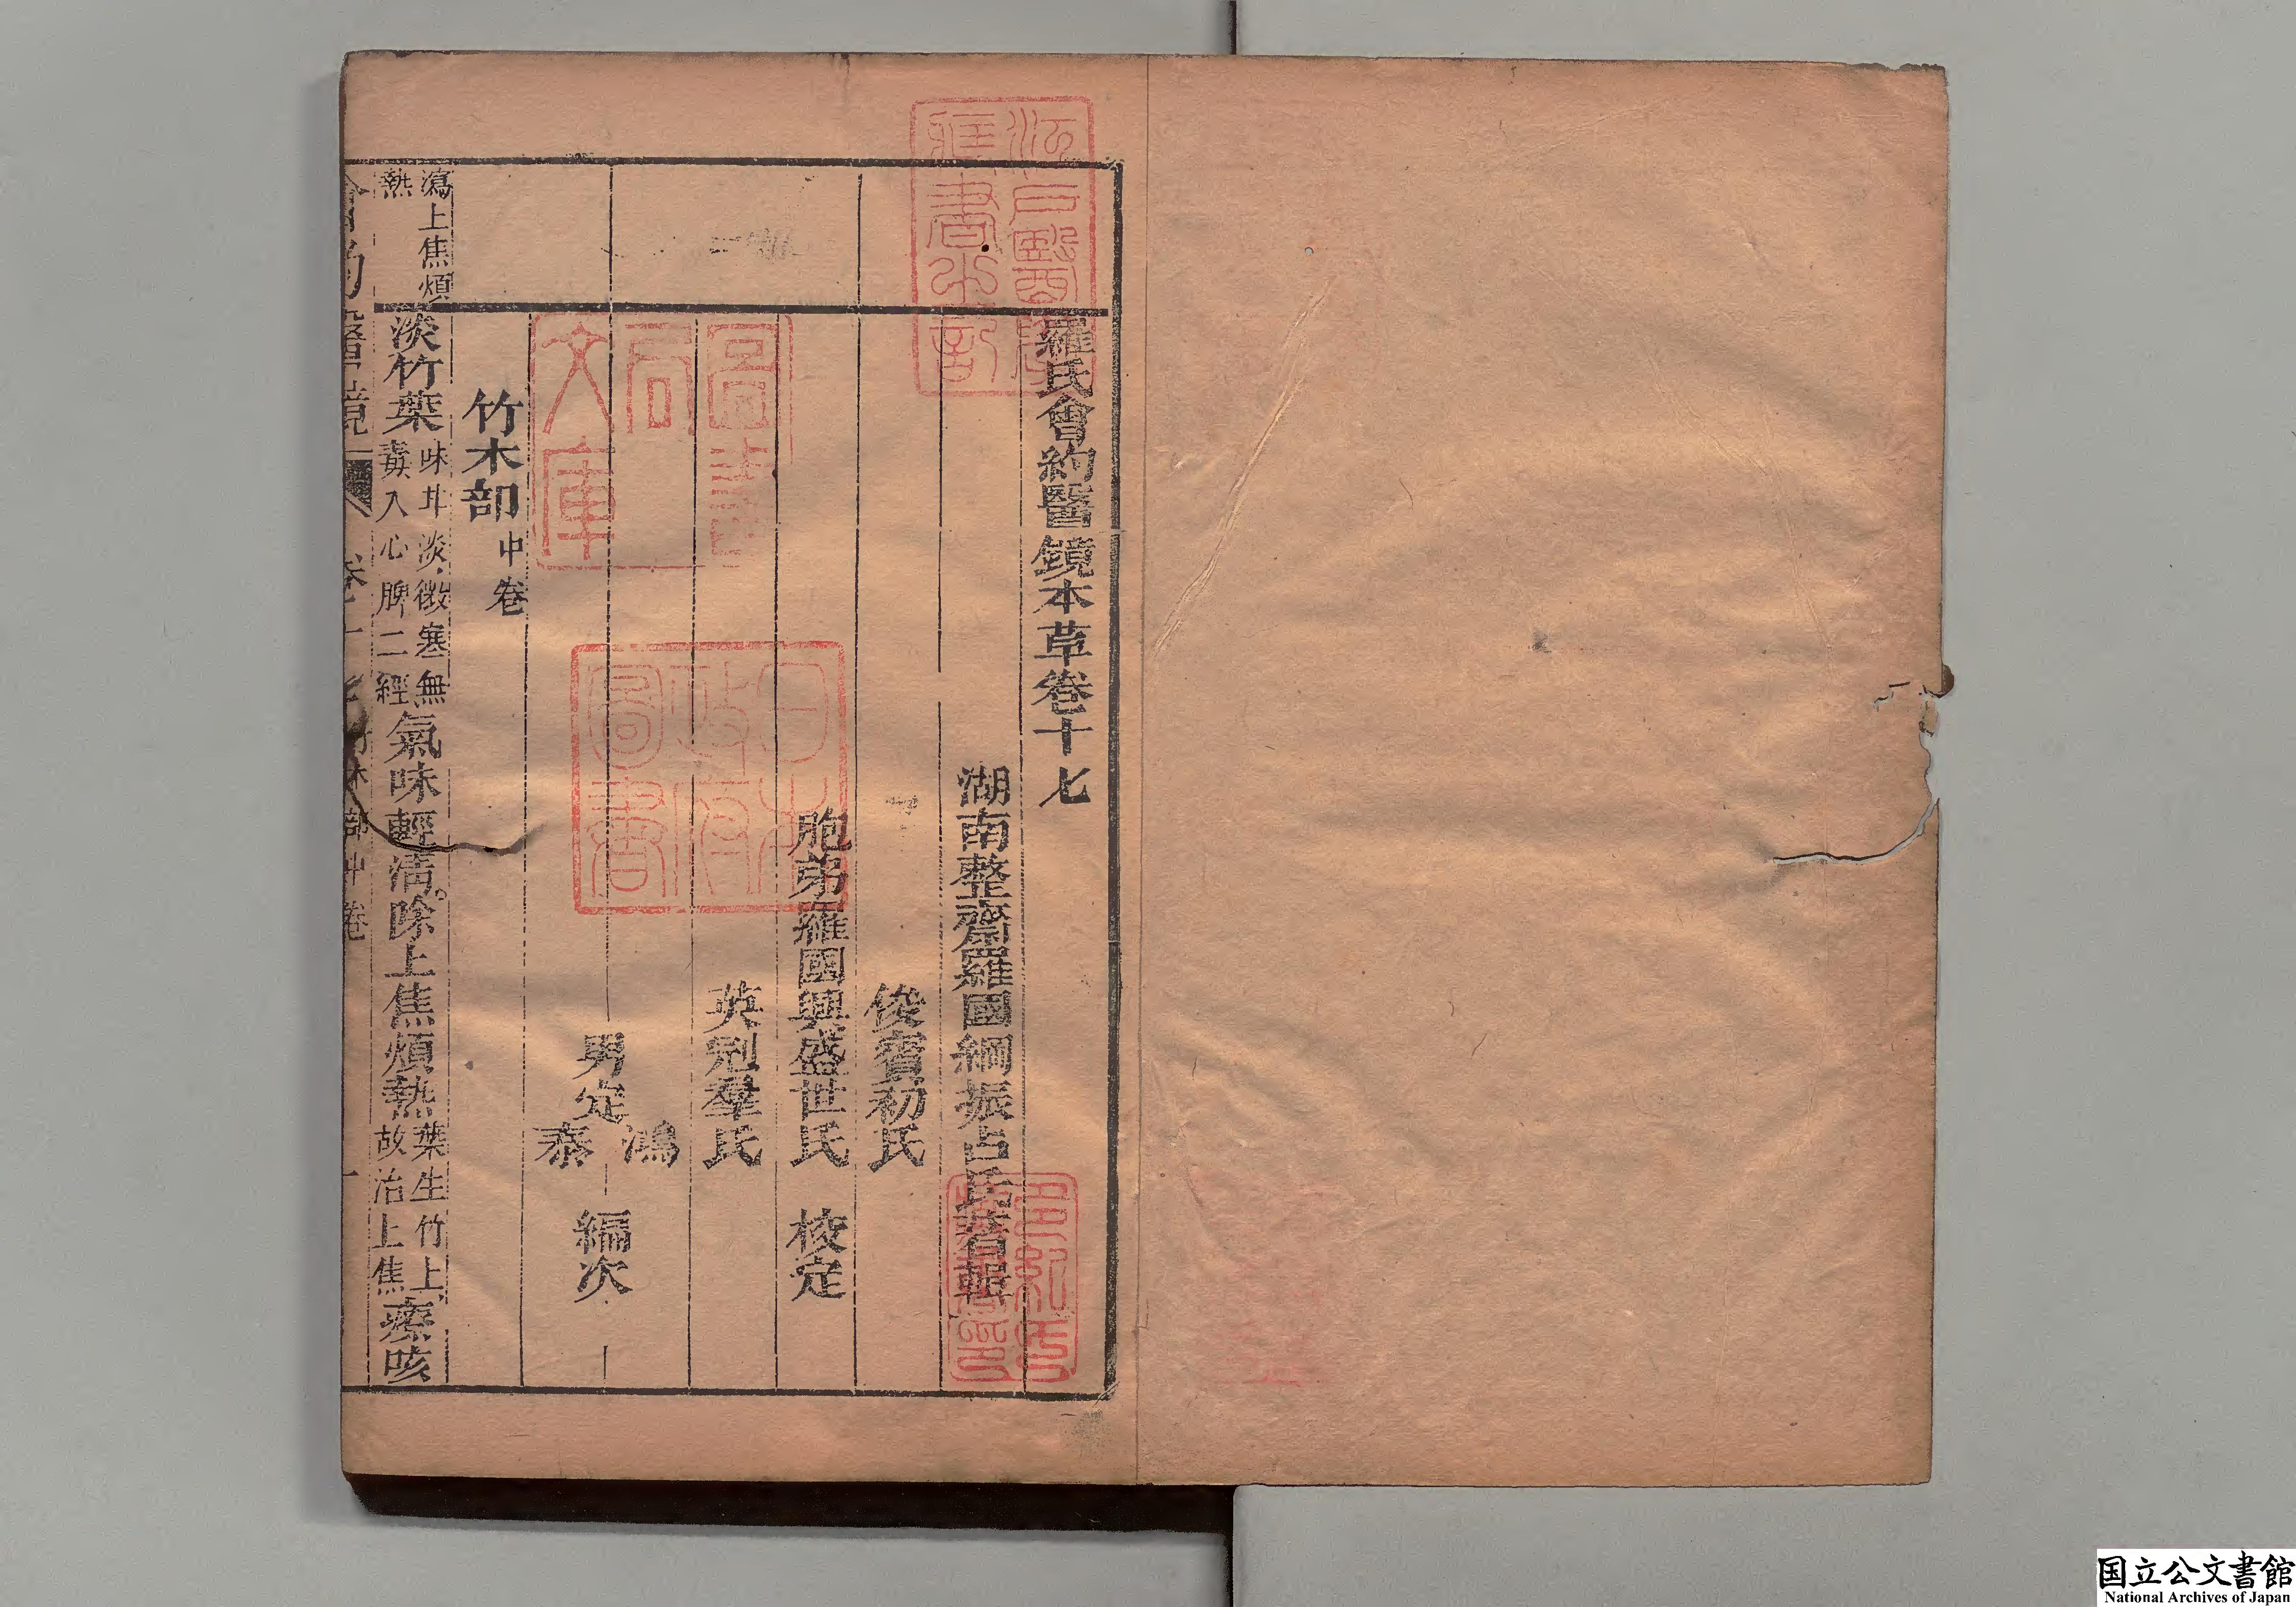 羅氏會約醫鏡本草卷十七
湖南整齋羅國綱振占氏著輯
俊賓初氏
胞弟羅國興盛世氏 校定
英別羣氏
男定鴻泰 編次
竹木部 中卷
瀉上焦煩熱
淡竹葉 味甘淡微寒無毒入心脾二經 氣味輕清。除上焦煩熱 葉生竹上故治上焦 療咳
會約醫鏡 卷十七 竹木部中卷 一
江戸醫學藏書之記
圖書局文庫
日本政府圖書
国立公文書館
National Archives of Japan